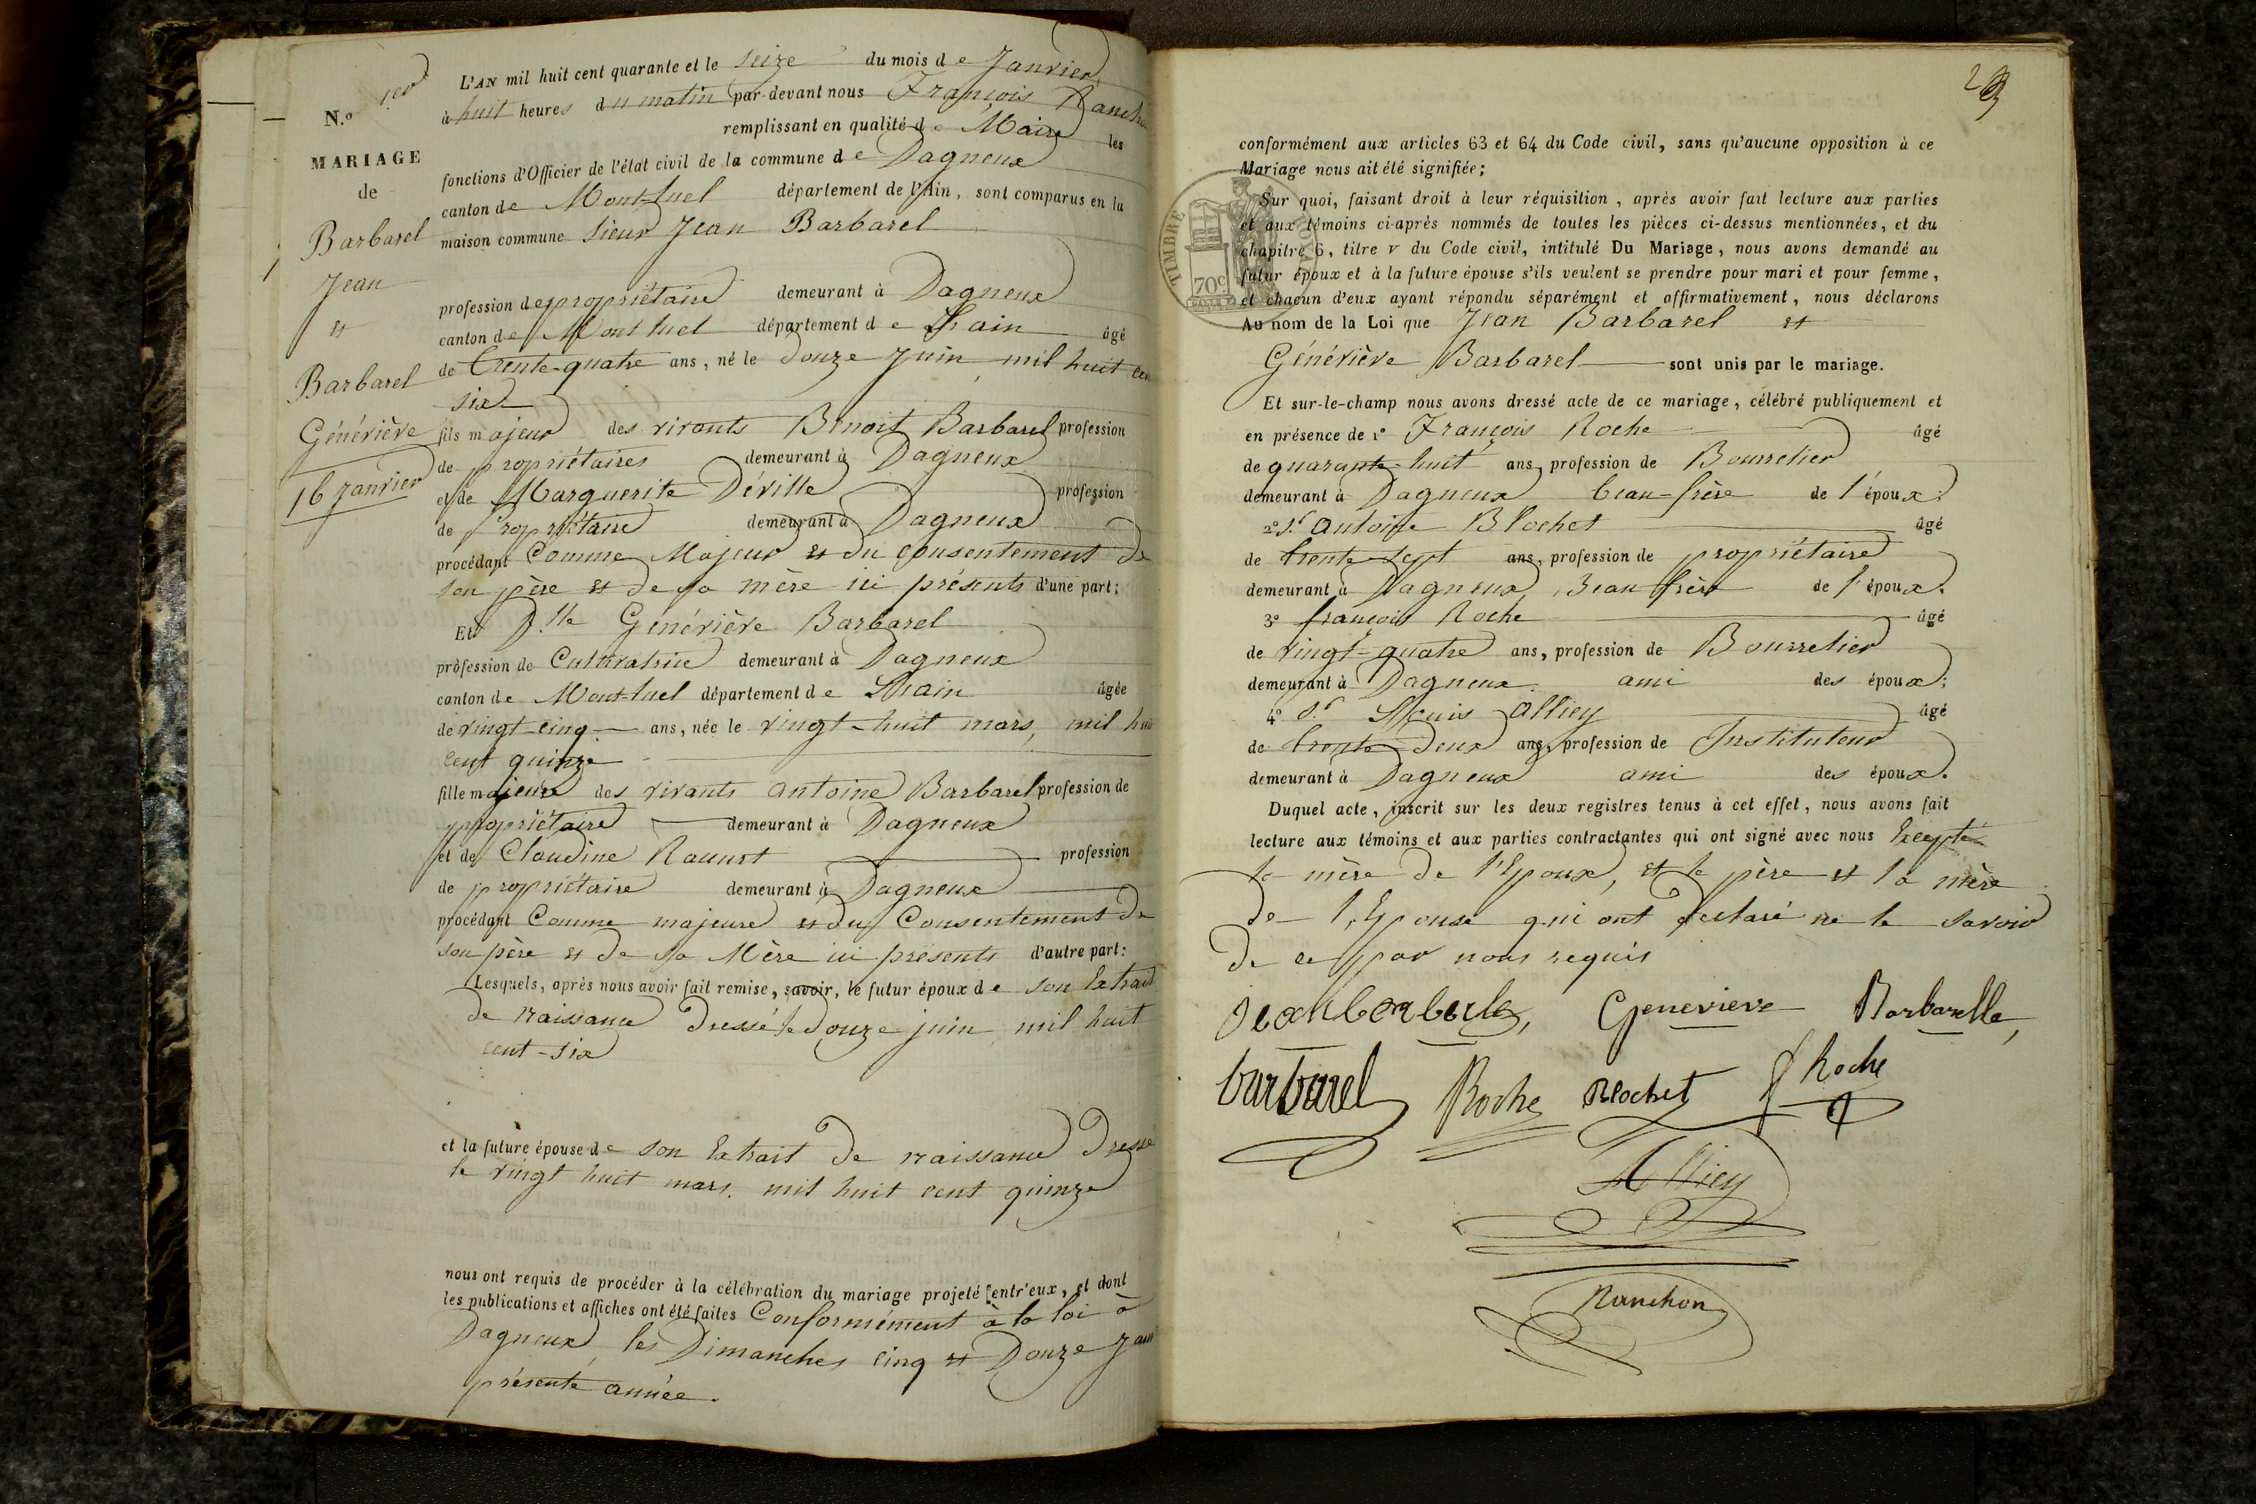 N.o 1.er
MARIAGE
de
Barbarel
Jean
et
Barbarel
Généviève
16 Janvier
L'AN mil huit cent quarante et le seize du mois de Janvier
à huit heures du matin par-devant nous François Ranchon
remplissant en qualité de Maire les
fonctions d'Officier de l'état civil de la commune de Dagneux
canton de Mont-luel département de l'Ain, sont comparus en la
maison commune Sieur Jean Barbarel
profession de propriétaire demeurant à Dagneux
canton de Mont-luel département de L'ain âgé
de trente-quatre ans, né le douze Juin mil huit cent
six
fils majeur des vivants Benoit Barbarel profession
de propriétaires demeurant à Dagneux
et de Marguerite Déville profession
de Propriétaire demeurant à Dagneux
procédant Comme Majeur et du consentement de
son père et de sa mère ici présents d'une part:
Et D.lle Généviève Barbarel
profession de Cultivatrice demeurant à Dagneux
canton de Mont-luel département de L'ain âgée
de vingt-cinq ans, née le vingt-huit mars, mil huit
cent quinze
fille majeure des vivants antoine Barbarel profession de
propriétaire demeurant à Dagneux
et de Claudine profession
de propriétaire demeurant à Dagneux
procédant Comme majeure et du Consentement de
son père et de sa Mère ici présents d'autre part:
Lesquels, après nous avoir fait remise, savoir, le futur époux de son Extrait
de naissance Dressé le Douze juin mil huit
cent-six
et la future épouse de son Extrait de naissance Dressé
le vingt huit mars. mil huit cent quinze
nous ont requis de procéder à la célébration du mariage projeté entr'eux, et dont
les publications et affiches ont été faites Conformément à la loi à
Dagneux, les Dimanches cinq et Douze Janv
présente année.
29
conformément aux articles 63 et 64 du Code civil, sans qu'aucune opposition à ce
Mariage nous ait été signifiée;
TIMBRE ROYAL
70c
Sur quoi, faisant droit à leur réquisition, après avoir fait lecture aux parties
et aux témoins ci-après nommés de toutes les pièces ci-dessus mentionnées, et du
chapitre 6, titre v du Code civil, intitulé Du Mariage, nous avons demandé au
futur époux et à la future épouse s'ils veulent se prendre pour mari et pour femme,
et chacun d'eux ayant répondu séparément et affirmativement, nous déclarons
Au nom de la Loi que Jean Barbarel et
Généviève Barbarel sont unis par le mariage.
Et sur-le-champ nous avons dressé acte de ce mariage, célébré publiquement et
en présence de 1o François Roche âgé
de quarante-huit ans, profession de Bourrelier
demeurant à Dagneux beau-frère de l'époux.
2o S.r antoine Blochet âgé
de trente-sept ans, profession de propriétaire
demeurant à Dagneux, Beau frère de l'époux.
3o françois Roche âgé
de vingt-quatre ans, profession de Bourrelier
demeurant à Dagneux. ami des époux;
4o S.r Louis Alliey âgé
de trente-Deux ans, profession de Instituteur
demeurant à Dagneux ami des époux.
Duquel acte, inscrit sur les deux registres tenus à cet effet, nous avons fait
lecture aux témoins et aux parties contractantes qui ont signé avec nous Excepté
la mère de l'Epoux, et le père et la mère
de l'Epouse qui ont déclaré ne le savoir
de ce par nous requis
Genevieve Barbarelle,
barbarel Roche Blochet f Roche
Alliey
Ranchon